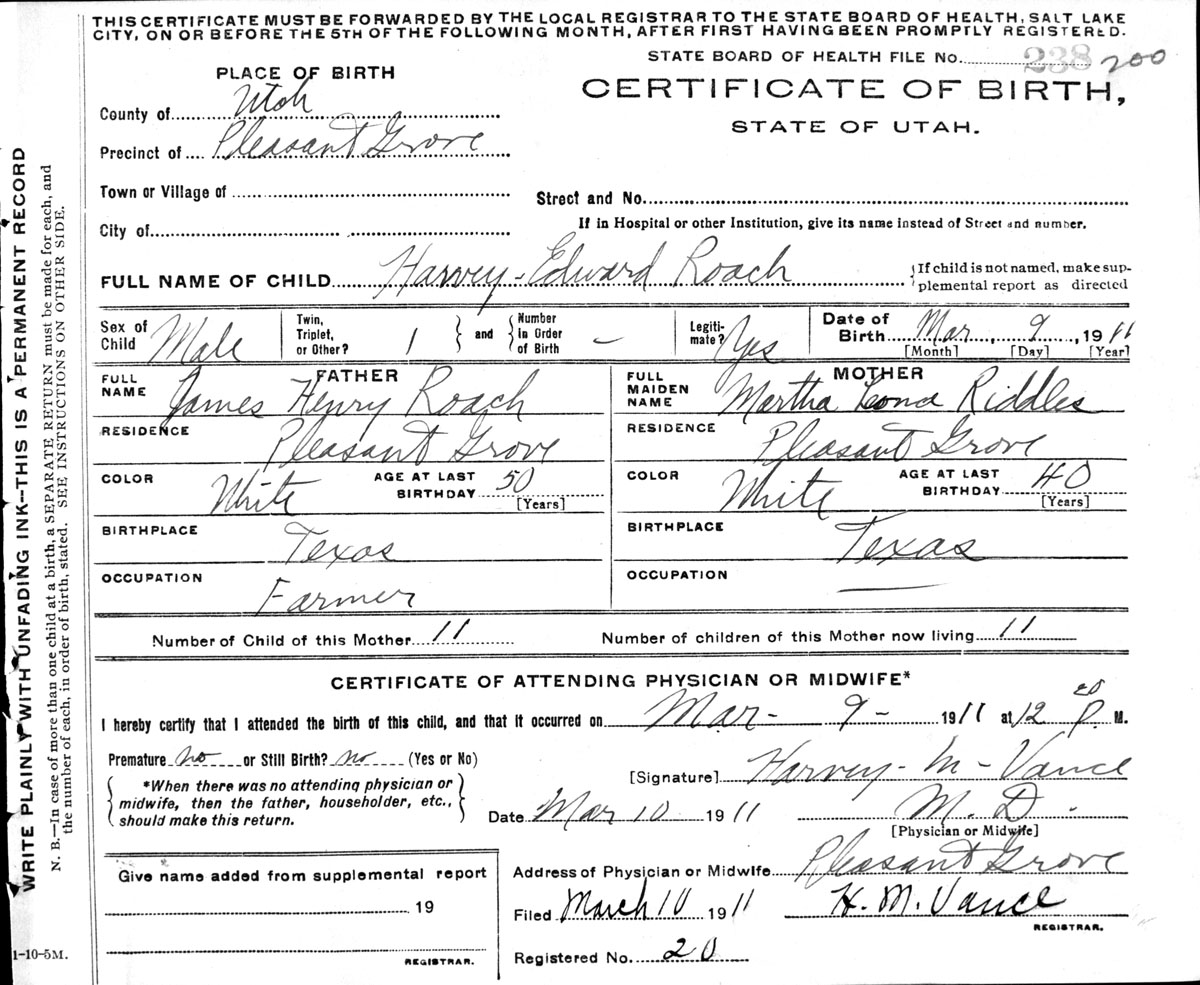 THIS CERTIFICATE MUST BE FORWARDED BY THE LOCAL REGISTRAR TO THE STATE BOARD OF HEALTH, SALT LAKE
CITY, ON OR BEFORE THE 5TH OF THE FOLLOWING MONTH, AFTER FIRST HAVING BEEN PROMPTLY REGISTERED.
STATE BOARD OF HEALTH FILE No. 238 200
PLACE OF BIRTH
CERTIFICATE OF BIRTH,
STATE OF UTAH.
County of Utah
Precinct of Pleasant Grove
Town or Village of
Street and No.
City of
If in Hospital or other Institution, give its name instead of Street and number.
FULL NAME OF CHILD Harvey-Edward Roach
{If child is not named, make sup-
plemental report as directed
Sex of Child Male
Twin, Triplet, or Other? 1 } and { Number in Order of Birth -
Legiti-mate? Yes
Date of Birth Mar, 9, 1911
[Month] [Day] [Year]
FATHER
FULL NAME James Henry Roach
RESIDENCE Pleasant Grove
COLOR White AGE AT LAST BIRTHDAY 50
[Years]
BIRTHPLACE Texas
OCCUPATION Farmer
MOTHER
FULL MAIDEN NAME Martha Leona Riddles
RESIDENCE Pleasant Grove
COLOR White AGE AT LAST BIRTHDAY 40
[Years]
BIRTHPLACE Texas
OCCUPATION —
Number of Child of this Mother 11 Number of children of this Mother now living 11
CERTIFICATE OF ATTENDING PHYSICIAN OR MIDWIFE*
I hereby certify that I attended the birth of this child, and that it occurred on Mar- 9- 1911 at 12 20 P M.
Premature no or Still Birth? no (Yes or No)
*When there was no attending physician or
midwife, then the father, householder, etc.,
should make this return.
[Signature] Harvey-M-Vance
Date Mar 10 1911 M.D.
[Physician or Midwife]
Address of Physician or Midwife Pleasant Grove
Filed March 10 1911 H. M. Vance
REGISTRAR.
Registered No. 20
Give name added from supplemental report
19
REGISTRAR.
WRITE PLAINLY WITH UNFADING INK—THIS IS A PERMANENT RECORD
N. B.—In case of more than one child at a birth, a SEPARATE RETURN must be made for each, and
the number of each, in order of birth, stated. SEE INSTRUCTIONS ON OTHER SIDE.
1-10-5M.